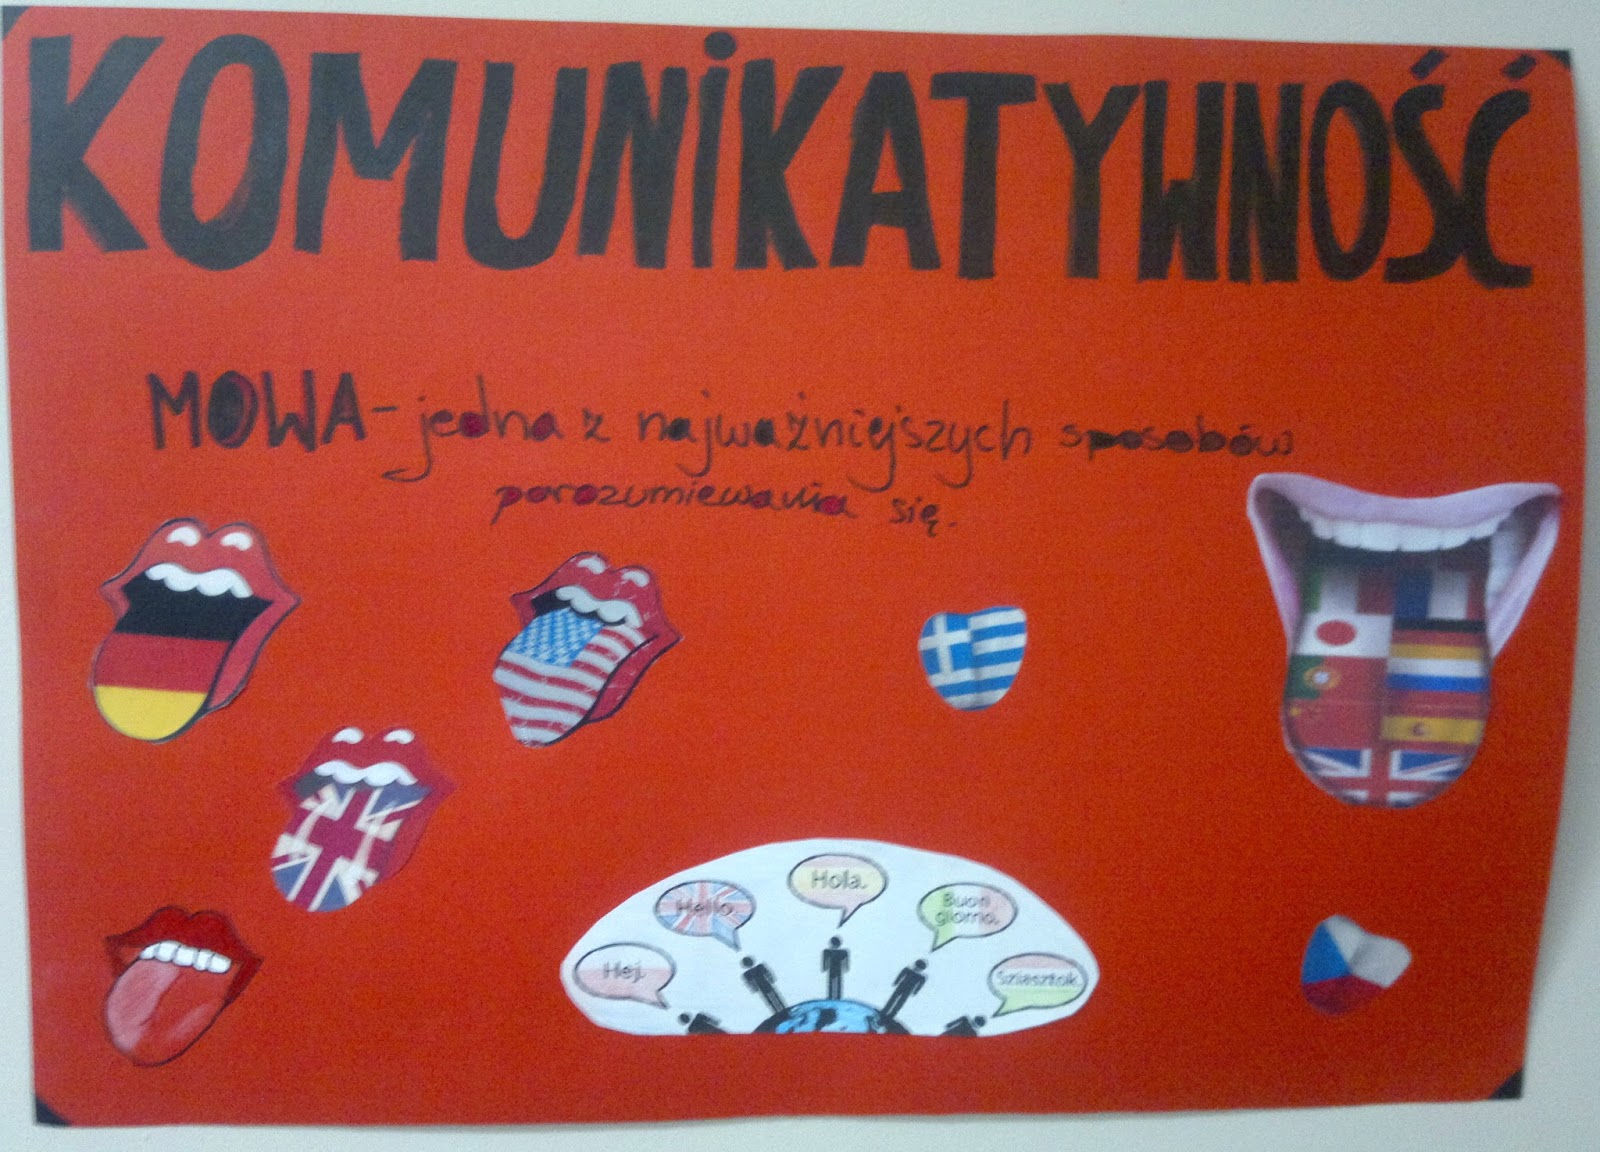 KOMUNiKATYWNOŚĆ
MOWA - jedna z najważniejszych sposobów
porozumiewania się.
Hej.
Hello.
Hola.
Buon
giorno.
Sziasztok.